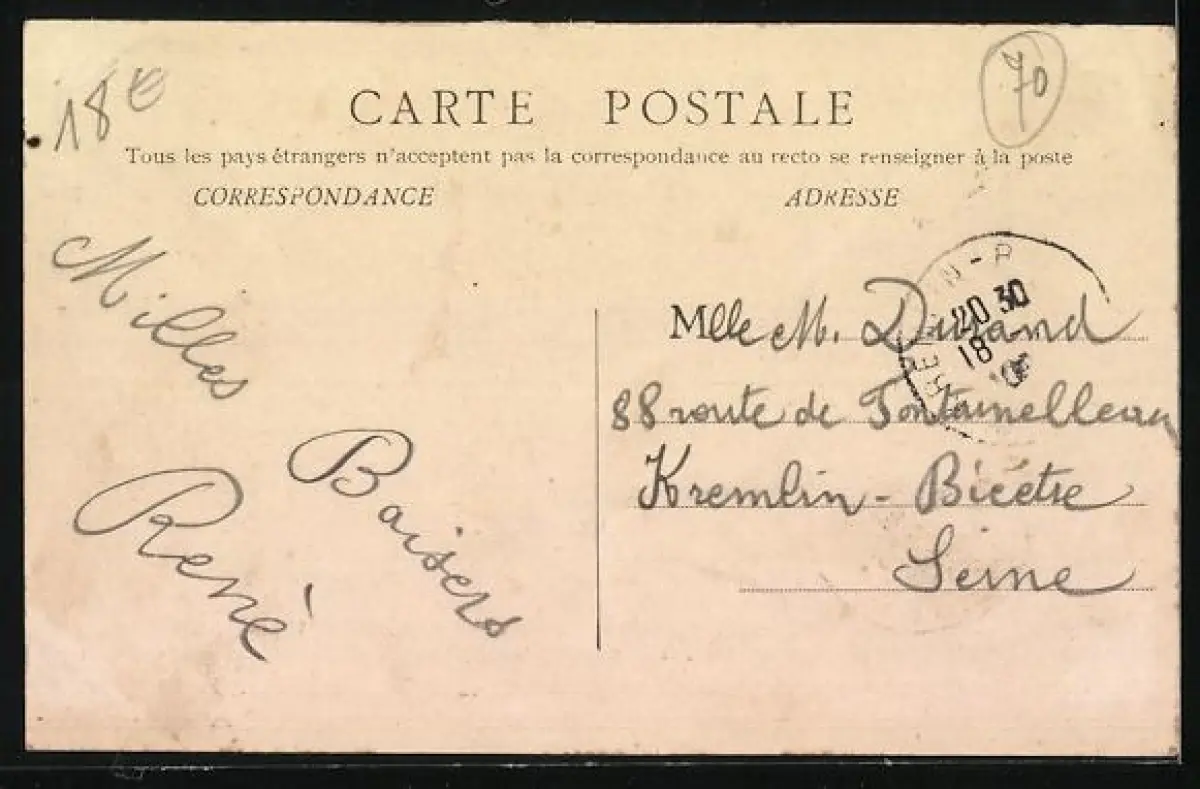 18€
70
CARTE POSTALE
Tous les pays étrangers n'acceptent pas la correspondance au recto se renseigner à la poste
CORRESPONDANCE
ADRESSE
Milles
Baisers
René
20 30
18
Mlle M. Durand
88 route de Fontainebleau
Kremlin-Bicêtre
Seine